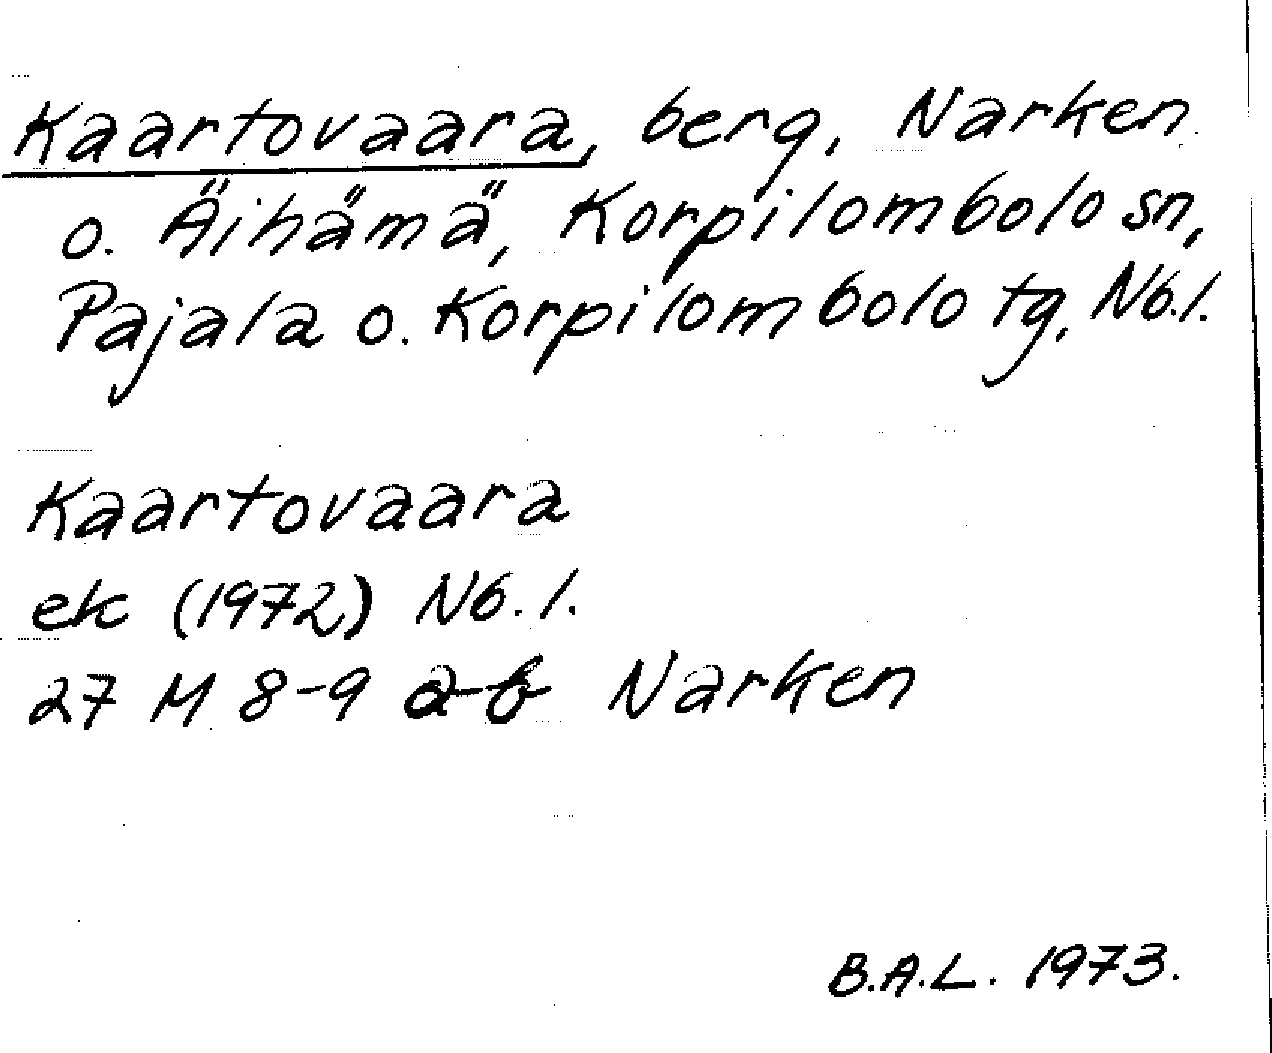 Kaartovaara, berg, Narken
o. Äihämä, Korpilombolo sn,
Pajala o. Korpilombolo tg, Nb.l.
Kaartovaara
ek (1972) Nb.l.
27 M 8-9 a-b Narken
B.A.L. 1973.